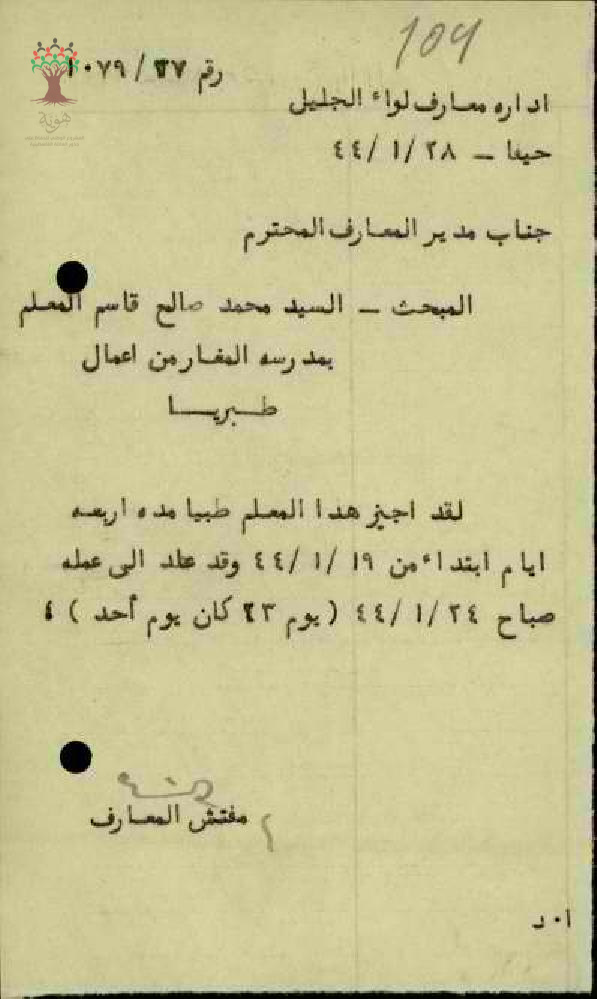 109
رقم ٢٧/ ١٠٧٩
اداره معارف لواء الجليل
حيفا ــ ٢٨ /١/ ٤٤
جناب مدير المعارف المحترم
المبحث ــ السيد محمد صالح قاسم المعلم
بمدرسه المغار من اعمال
طــبريــــا
لقد اجيز هدا المعلم طبيا مده اربعـه
ايام ابتداء من ١٩ /١/ ٤٤ وقد عاد الى عمله
صباح ٢٤ /١/ ٤٤ ( يوم ٢٣ كان يوم أحد )
مفتش المعـارف
ا٠د
هوية